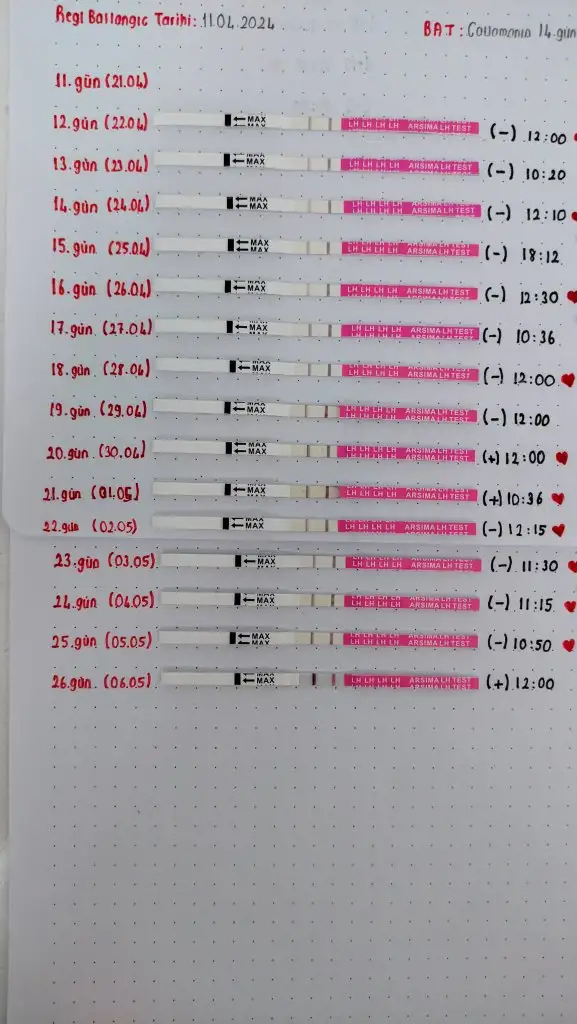 Regl Başlangıç Tarihi: 11.04.2024
BAT: Covomonia 14.gün
11.gün (21.04)
12.gün (22.04) MAX MAX LH LH LH LH ARSIMA LH TEST (-) 12:00
13.gün (23.04) MAX MAX LH LH LH LH ARSIMA LH TEST (-) 10:20
14.gün (24.04) MAX MAX LH LH LH LH ARSIMA LH TEST (-) 12:10
15.gün (25.04) MAX MAX LH LH LH LH ARSIMA LH TEST (-) 18:12
16.gün (26.04) MAX MAX LH LH LH LH ARSIMA LH TEST (-) 12:30
17.gün (27.04) MAX MAX LH LH LH LH ARSIMA LH TEST (-) 10:36
18.gün (28.04) MAX MAX LH LH LH LH ARSIMA LH TEST (-) 12:00
19.gün (29.04) MAX MAX LH LH LH LH ARSIMA LH TEST (-) 12:00
20.gün (30.04) MAX MAX LH LH LH LH ARSIMA LH TEST (+) 12:00
21.gün (01.05) MAX MAX LH LH LH LH ARSIMA LH TEST (+) 10:36
22.gün (02.05) MAX MAX LH LH LH LH ARSIMA LH TEST (-) 12:15
23.gün (03.05) MAX MAX LH LH LH LH ARSIMA LH TEST (-) 11:30
24.gün (04.05) MAX MAX LH LH LH LH ARSIMA LH TEST (-) 11:15
25.gün (05.05) MAX MAX LH LH LH LH ARSIMA LH TEST (-) 10:50
26.gün (06.05) MAX MAX LH LH LH LH ARSIMA LH TEST (+) 12:00